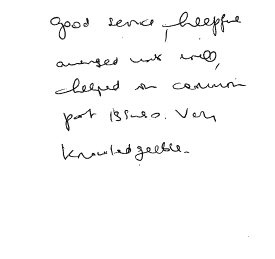 Good service, helpful
arranged visit well,
helped on common
part issues. Very
knowledgeable.